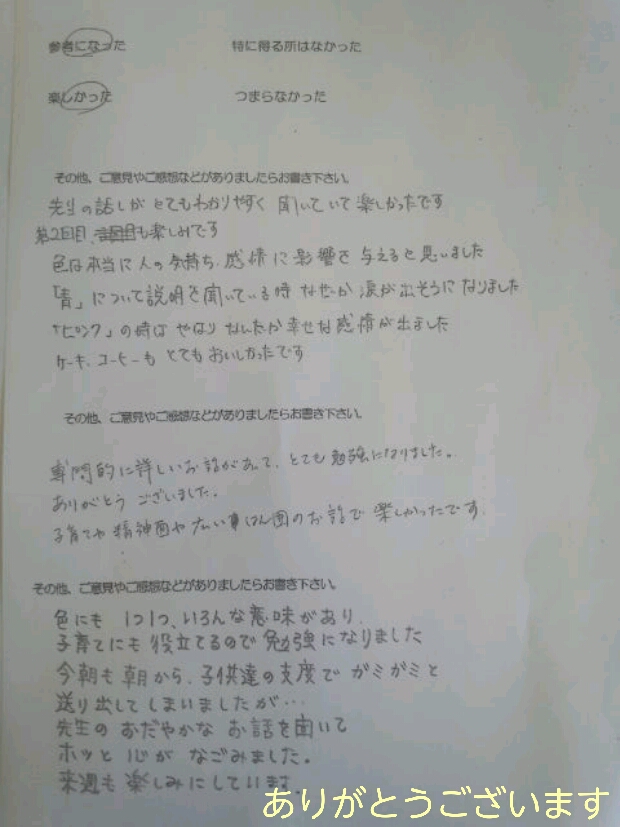 参考になった 特に得る所はなかった
楽しかった つまらなかった
その他、ご意見やご感想などがありましたらお書き下さい。
先生の話しがとてもわかりやすく 聞いていて楽しかったです
第2回目、も楽しみです
色は本当に人の気持ち、感情に影響を与えると思いました
「青」について説明を聞いている時なぜか涙が出そうになりました
「ピンク」の時はやはりなんだか幸せな感情が出ました
ケーキ、コーヒーもとてもおいしかったです
その他、ご意見やご感想などがありましたらお書き下さい。
専門的に詳しいお話があって、とても勉強になりました。
ありがとうございました。
子育てや精神面や はん囲のお話で楽しかったです。
その他、ご意見やご感想などがありましたらお書き下さい。
色にも1つ1つ、いろんな意味があり、
子育てにも役立てるので勉強になりました
今朝も朝から、子供達の支度でガミガミと
送り出してしまいましたが…
先生のおだやかなお話を聞いて
ホッと心がなごみました。
来週も楽しみにしています。
ありがとうございます